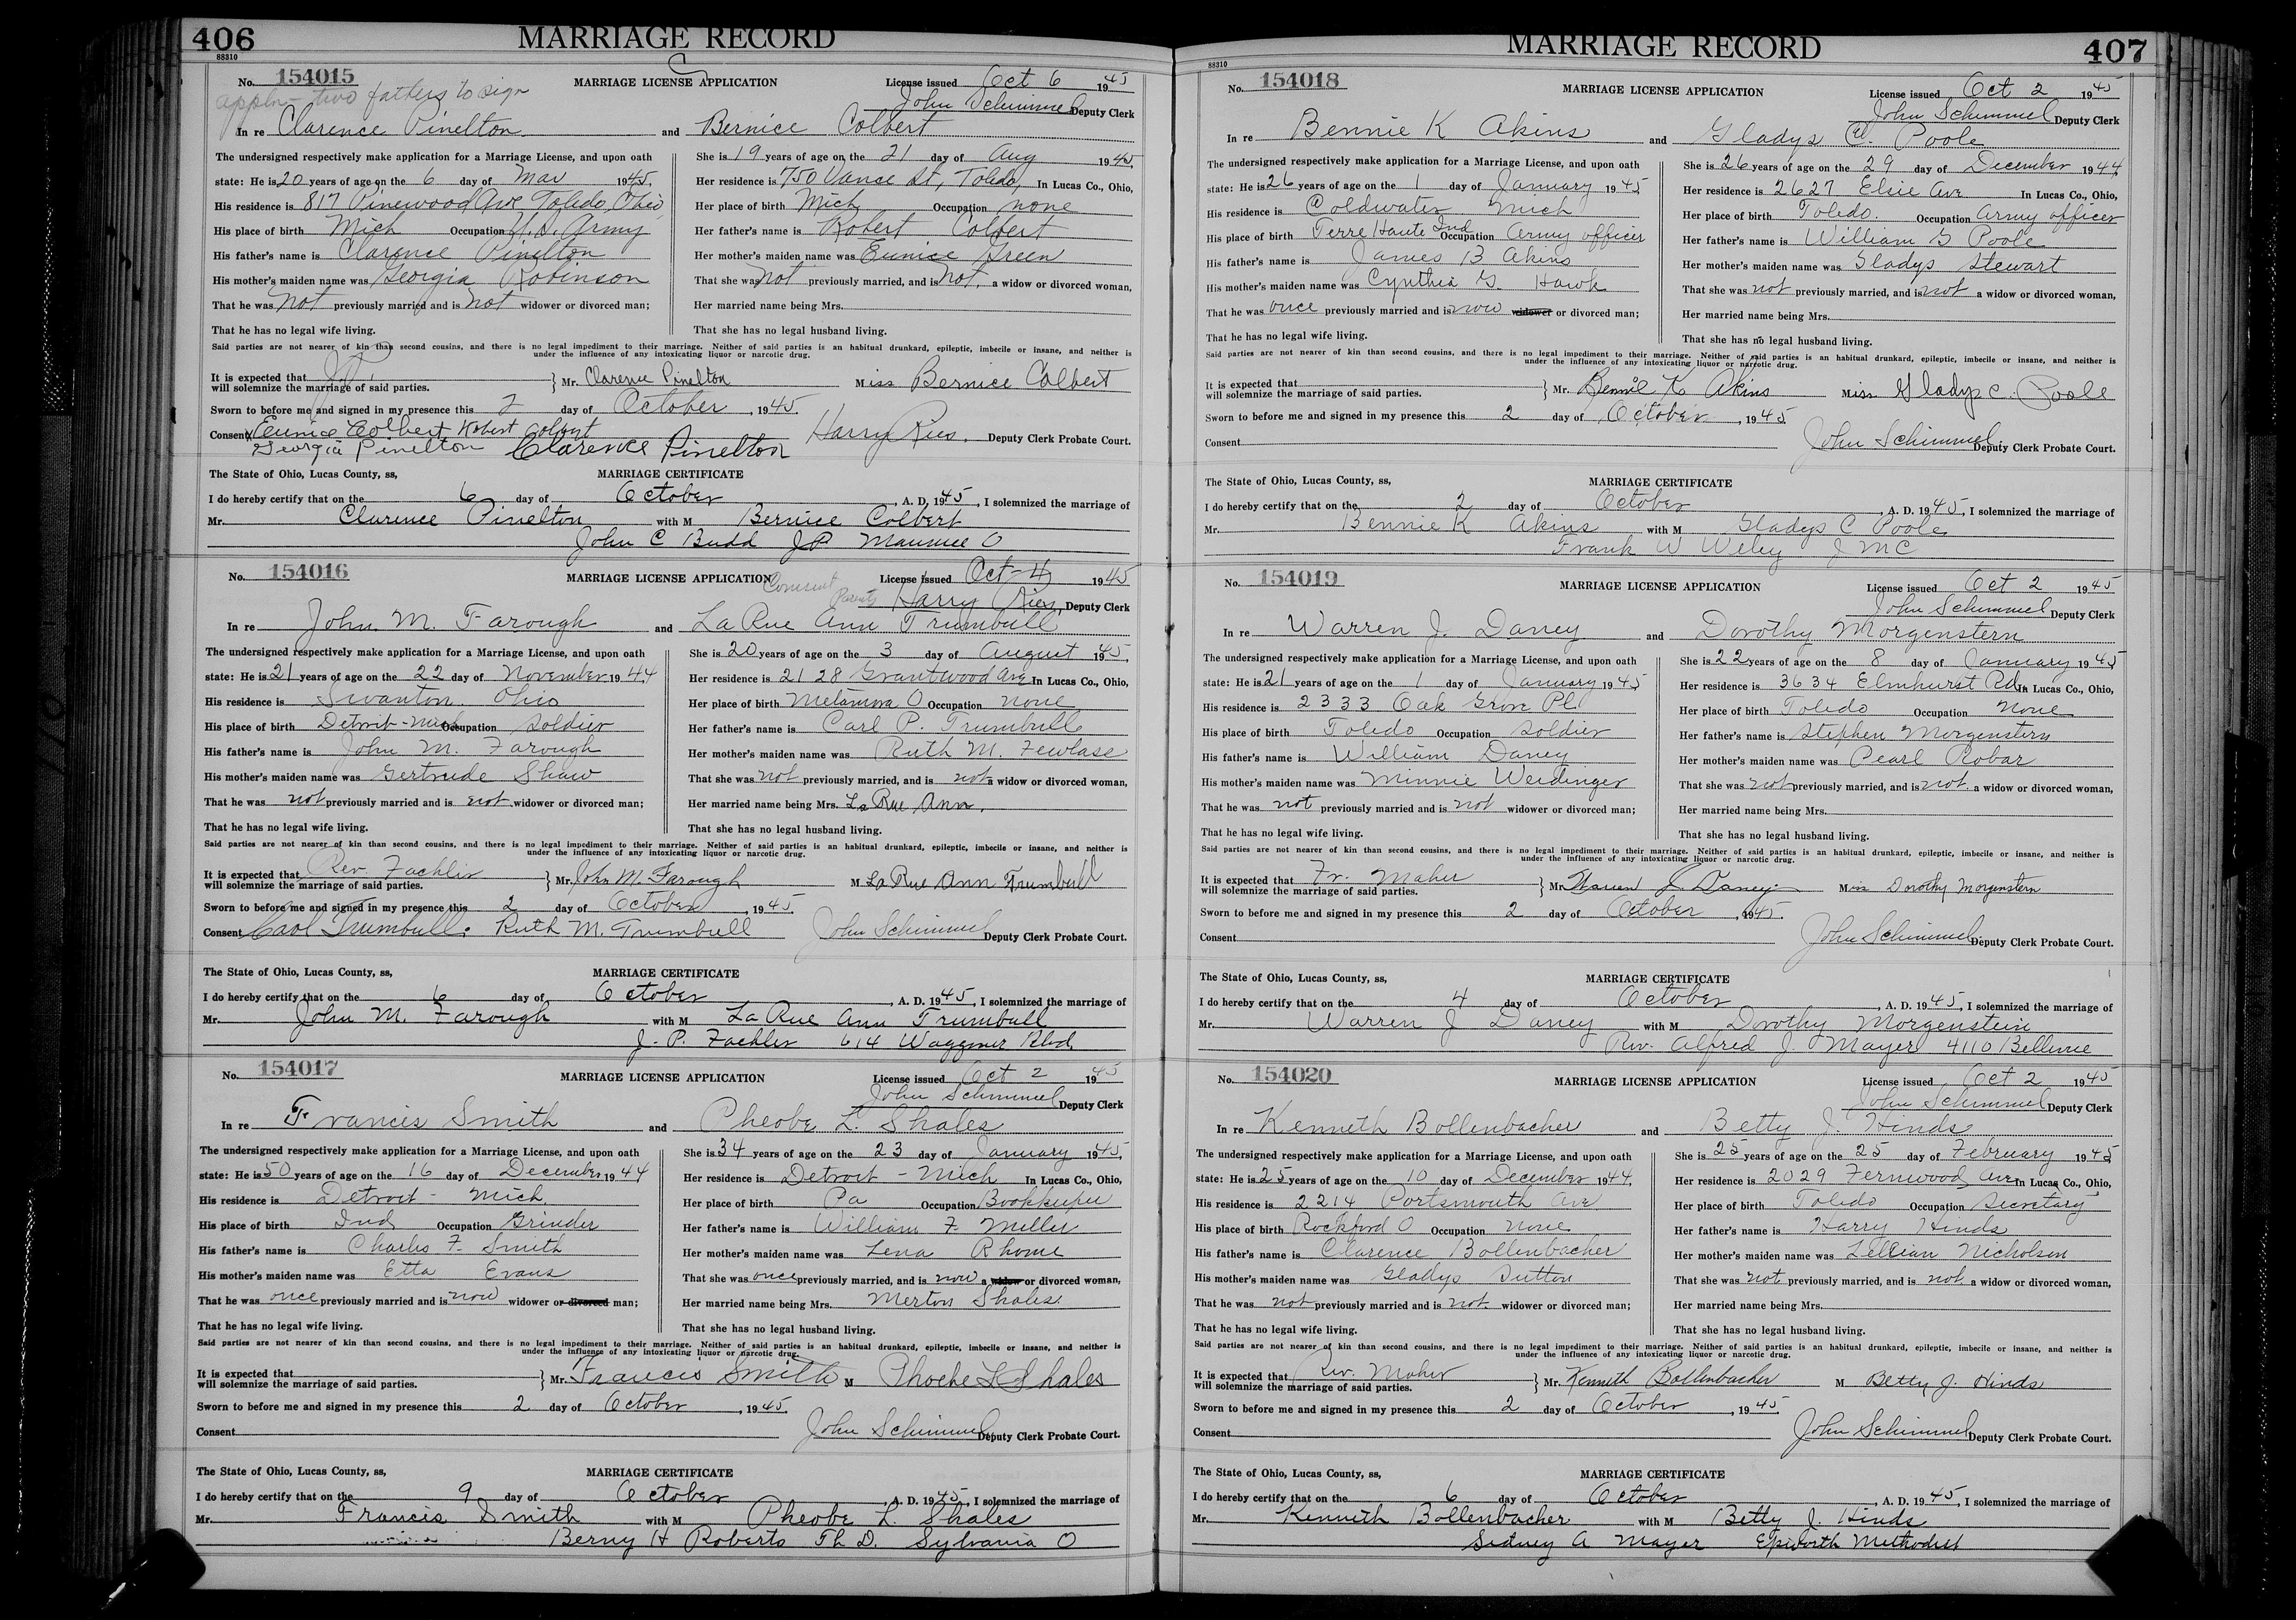 406
MARRIAGE RECORD
88310
No. 154015 MARRIAGE LICENSE APPLICATION License issued Oct 6 1945
appln - two fathers to sign
John Schimmel Deputy Clerk
In re Clarence Pinelton and Bernice Colbert
The undersigned respectively make application for a Marriage License, and upon oath
state: He is 20 years of age on the 6 day of Mar 1945,
His residence is 817 Pinewood Ave, Toledo, Ohio
His place of birth Mich Occupation U.S. Army
His father's name is Clarence Pinelton
His mother's maiden name was Georgia Robinson
That he was not previously married and is not widower or divorced man;
That he has no legal wife living.
She is 19 years of age on the 21 day of Aug 1945,
Her residence is 750 Vance St, Toledo, In Lucas Co., Ohio,
Her place of birth Mich Occupation none
Her father's name is Robert Colbert
Her mother's maiden name was Eunice Green
That she was not previously married, and is not, a widow or divorced woman,
Her married name being Mrs.
That she has no legal husband living.
Said parties are not nearer of kin than second cousins, and there is no legal impediment to their marriage. Neither of said parties is an habitual drunkard, epileptic, imbecile or insane, and neither is
under the influence of any intoxicating liquor or narcotic drug.
It is expected that J.P.
will solemnize the marriage of said parties. } Mr. Clarence Pinelton Miss Bernice Colbert
Sworn to before me and signed in my presence this 2 day of October, 1945.
Consent Eunice Colbert Robert Colbert
Georgia Pinelton Clarence Pinelton Harry Ries. Deputy Clerk Probate Court.
The State of Ohio, Lucas County, ss, MARRIAGE CERTIFICATE
I do hereby certify that on the 6 day of October, A. D. 1945, I solemnized the marriage of
Mr. Clarence Pinelton with M Bernice Colbert
John C Budd JP Maumee O
No. 154016 MARRIAGE LICENSE APPLICATION License issued Oct-4 1945
Consent Parents Harry Ries, Deputy Clerk
In re John M. Farough and LaRue Ann Trumbull
The undersigned respectively make application for a Marriage License, and upon oath
state: He is 21 years of age on the 22 day of November 1944
His residence is Swanton Ohio
His place of birth Detroit-Mich Occupation soldier
His father's name is John M. Farough
His mother's maiden name was Gertrude Shaw
That he was not previously married and is not widower or divorced man;
That he has no legal wife living.
She is 20 years of age on the 3 day of August 1945,
Her residence is 2128 Grantwood Ave In Lucas Co., Ohio,
Her place of birth Metamora O Occupation none
Her father's name is Carl P. Trumbull
Her mother's maiden name was Ruth M. Fewlase
That she was not previously married, and is not a widow or divorced woman,
Her married name being Mrs. La Rue Ann.
That she has no legal husband living.
Said parties are not nearer of kin than second cousins, and there is no legal impediment to their marriage. Neither of said parties is an habitual drunkard, epileptic, imbecile or insane, and neither is
under the influence of any intoxicating liquor or narcotic drug.
It is expected that Rev. Fachler
will solemnize the marriage of said parties. } Mr. John M. Farough M La Rue Ann Trumbull
Sworn to before me and signed in my presence this 2 day of October, 1945.
Consent Carl Trumbull. Ruth M. Trumbull John Schimmel Deputy Clerk Probate Court.
The State of Ohio, Lucas County, ss, MARRIAGE CERTIFICATE
I do hereby certify that on the 6 day of October, A. D. 1945, I solemnized the marriage of
Mr. John M. Farough with M La Rue Ann Trumbull
J. P. Fachler 614 Waggoner Blvd.
No. 154017 MARRIAGE LICENSE APPLICATION License issued Oct 2 1945
John Schimmel Deputy Clerk
In re Francis Smith and Pheobe L. Shales
The undersigned respectively make application for a Marriage License, and upon oath
state: He is 50 years of age on the 16 day of December 1944
His residence is Detroit - Mich.
His place of birth Ind Occupation Grinder
His father's name is Charles F. Smith
His mother's maiden name was Etta Evans
That he was once previously married and is now widower or divorced man;
That he has no legal wife living.
She is 34 years of age on the 23 day of January 1945,
Her residence is Detroit - Mich In Lucas Co., Ohio,
Her place of birth Pa Occupation Bookkeeper
Her father's name is William F. Miller
Her mother's maiden name was Lena Rhome
That she was once previously married, and is now a widow or divorced woman,
Her married name being Mrs. Merton Shales.
That she has no legal husband living.
Said parties are not nearer of kin than second cousins, and there is no legal impediment to their marriage. Neither of said parties is an habitual drunkard, epileptic, imbecile or insane, and neither is
under the influence of any intoxicating liquor or narcotic drug.
It is expected that
will solemnize the marriage of said parties. } Mr. Francis Smith M Phoebe L Shales
Sworn to before me and signed in my presence this 2 day of October, 1945.
Consent John Schimmel Deputy Clerk Probate Court.
The State of Ohio, Lucas County, ss, MARRIAGE CERTIFICATE
I do hereby certify that on the 9 day of October, A. D. 1945, I solemnized the marriage of
Mr. Francis Smith with M Pheobe L. Shales
Berny H Roberts Th D. Sylvania O
407
MARRIAGE RECORD
88310
No. 154018 MARRIAGE LICENSE APPLICATION License issued Oct 2 1945
John Schimmel Deputy Clerk
In re Bennie K Akins and Gladys C. Poole
The undersigned respectively make application for a Marriage License, and upon oath
state: He is 26 years of age on the 1 day of January 1945
His residence is Coldwater Mich
His place of birth Terre Haute Ind Occupation Army officer
His father's name is James B Akins
His mother's maiden name was Cynthia G. Hawk
That he was once previously married and is now widower or divorced man;
That he has no legal wife living.
She is 26 years of age on the 29 day of December 1944
Her residence is 2627 Elsie Ave In Lucas Co., Ohio,
Her place of birth Toledo. Occupation Army officer
Her father's name is William G Poole
Her mother's maiden name was Gladys Stewart
That she was not previously married, and is not a widow or divorced woman,
Her married name being Mrs.
That she has no legal husband living.
Said parties are not nearer of kin than second cousins, and there is no legal impediment to their marriage. Neither of said parties is an habitual drunkard, epileptic, imbecile or insane, and neither is
under the influence of any intoxicating liquor or narcotic drug.
It is expected that
will solemnize the marriage of said parties. } Mr. Bennie K Akins Miss Gladys C. Poole
Sworn to before me and signed in my presence this 2 day of October, 1945
Consent John Schimmel Deputy Clerk Probate Court.
The State of Ohio, Lucas County, ss, MARRIAGE CERTIFICATE
I do hereby certify that on the 2 day of October, A. D. 1945, I solemnized the marriage of
Mr. Bennie K Akins with M Gladys C Poole
Frank W Wiley J M C
No. 154019 MARRIAGE LICENSE APPLICATION License issued Oct 2 1945
John Schimmel Deputy Clerk
In re Warren J. Daney and Dorothy Morgenstern
The undersigned respectively make application for a Marriage License, and upon oath
state: He is 21 years of age on the 1 day of January 1945
His residence is 2333 Oak Grove Pl
His place of birth Toledo Occupation soldier
His father's name is William Daney
His mother's maiden name was Minnie Weidinger
That he was not previously married and is not widower or divorced man;
That he has no legal wife living.
She is 22 years of age on the 8 day of January 1945
Her residence is 3634 Elmhurst Rd. In Lucas Co., Ohio,
Her place of birth Toledo Occupation None
Her father's name is Stephen Morgenstern
Her mother's maiden name was Pearl Robar
That she was not previously married, and is not a widow or divorced woman,
Her married name being Mrs.
That she has no legal husband living.
Said parties are not nearer of kin than second cousins, and there is no legal impediment to their marriage. Neither of said parties is an habitual drunkard, epileptic, imbecile or insane, and neither is
under the influence of any intoxicating liquor or narcotic drug.
It is expected that Fr. Maher
will solemnize the marriage of said parties. } Mr. Warren J. Daney Miss Dorothy Morgenstern
Sworn to before me and signed in my presence this 2 day of October, 1945.
Consent John Schimmel Deputy Clerk Probate Court.
The State of Ohio, Lucas County, ss, MARRIAGE CERTIFICATE
I do hereby certify that on the 4 day of October, A. D. 1945, I solemnized the marriage of
Mr. Warren J Daney with M Dorothy Morgenstein
Rev. Alfred J. Mayer 4110 Bellevue
No. 154020 MARRIAGE LICENSE APPLICATION License issued Oct 2 1945
John Schimmel Deputy Clerk
In re Kenneth Bollenbacher and Betty J. Hinds
The undersigned respectively make application for a Marriage License, and upon oath
state: He is 25 years of age on the 10 day of December 1944,
His residence is 2214 Portsmouth Ave
His place of birth Rockford O Occupation none
His father's name is Clarence Bollenbacher
His mother's maiden name was Gladys Dutton
That he was not previously married and is not widower or divorced man;
That he has no legal wife living.
She is 25 years of age on the 25 day of February 1945
Her residence is 2029 Fernwood Ave In Lucas Co., Ohio,
Her place of birth Toledo Occupation Secretary
Her father's name is Harry Hinds
Her mother's maiden name was Lillian Nicholson
That she was not previously married, and is not a widow or divorced woman,
Her married name being Mrs.
That she has no legal husband living.
Said parties are not nearer of kin than second cousins, and there is no legal impediment to their marriage. Neither of said parties is an habitual drunkard, epileptic, imbecile or insane, and neither is
under the influence of any intoxicating liquor or narcotic drug.
It is expected that Rev. Maher
will solemnize the marriage of said parties. } Mr. Kenneth Bollenbacher M Betty J. Hinds
Sworn to before me and signed in my presence this 2 day of October, 1945
Consent John Schimmel Deputy Clerk Probate Court.
The State of Ohio, Lucas County, ss, MARRIAGE CERTIFICATE
I do hereby certify that on the 6 day of October, A. D. 1945, I solemnized the marriage of
Mr. Kenneth Bollenbacher with M Betty J. Hinds
Sidney A Mayer Epworth Methodist